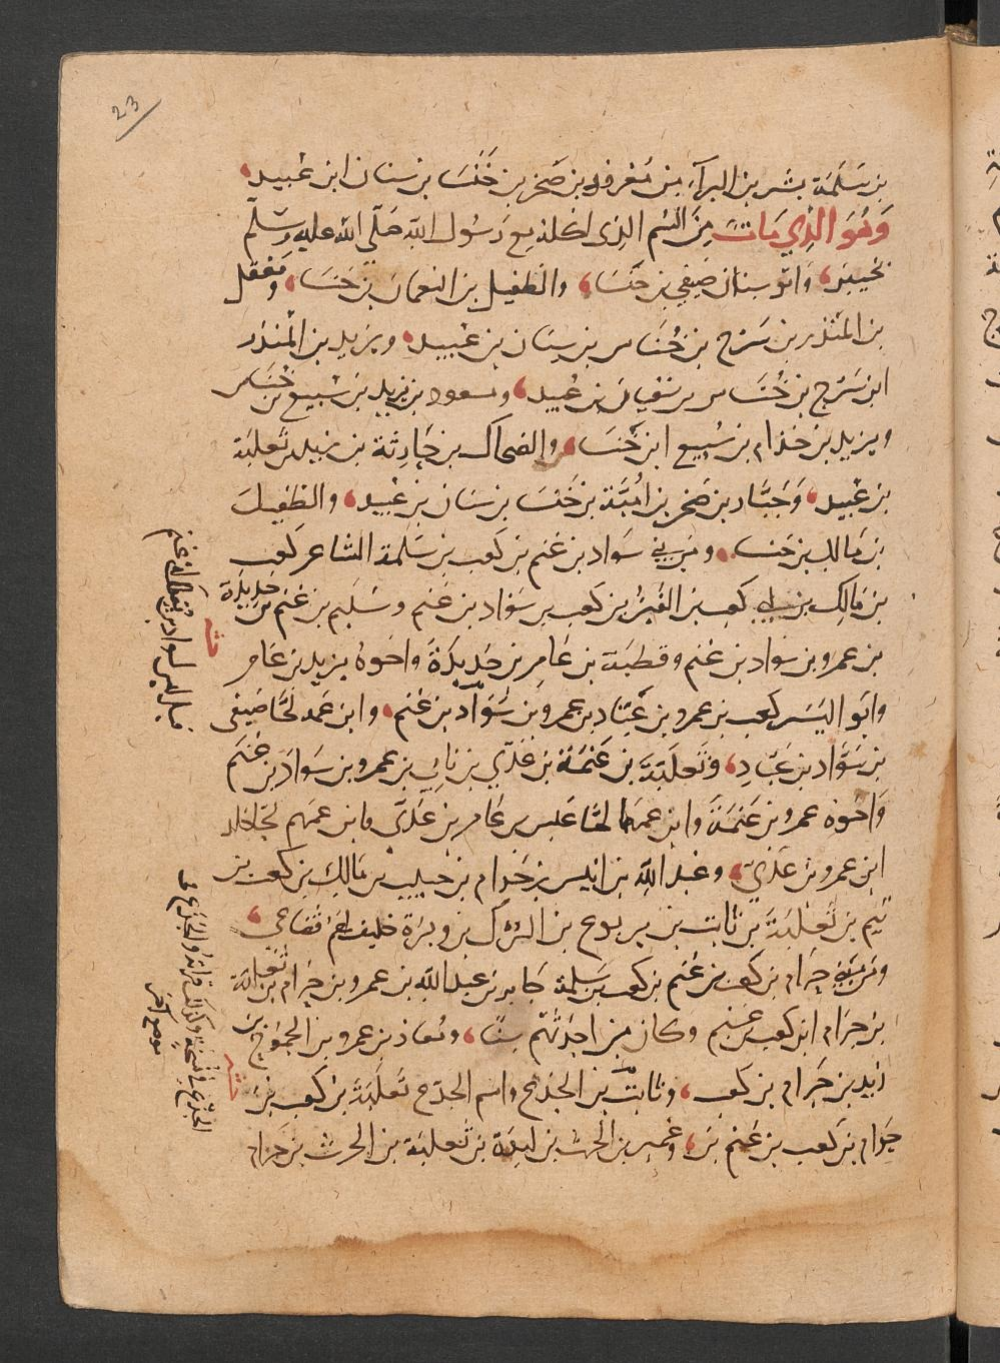 23
بن سَلَمَة بشر بن البرآء بن مَعْرور بن صَخر بن خَنْسَا بن سنان ابن عُبيد
وَهُوَ الَّذِي مَاتَ مِنَ السُّم الذى اكله مع رَسُول الله صَلّى الله عليه وسَلّم
بخيبَر وابو سنان صَيفى بن خَنْسَا والطُفيل بن النعمان بن خَنسَا ومَعْقل
بن المنْذر بن سَرْح بن خُنَاس بن سِنَان بن عُبيد ويزيد بن المنذر
ابن سَرْح بن خُنَاس بن سنان بن عُبيد ومسعود بن يزيد بن سُبيع بن خَنسَا
ويزيد بن خذام بن سُبيع ابن خَنسَا والضحاك بن حَارِثة بن زيد بن ثعلبَة
بن عُبيد وَجَبَّار بن صَخر بن امَيَّة بن خَنسَا بن سنان بن عُبيد والطفيل
بن مَالِك بن خَنسَا ومن بنى سَواد بن غَنم بن كَعب بن سَلمة الشاعر كعب
بن مَالِك بن ابى كعب بن القَيْن بن كَعب بن سَوَاد بن غنم وسُليم بن غنم بن حَدِيدَة
بن عمرو بن سواد بن غنم وقطبَة بن عَامِر بن حَدِيدَةَ واخوهُ يزيد بن عَامر
وابو اليَسَر كعب بن عمرو بن عَبَّاد بن عمرو بن سَوَاد بن غنم وابن عمه لَحًّا صَيفى
بن سَوَاد بن عَبَّادِ وثَعلَبَة بن غنَمة بن عَدِيّ بن نابى بن عمرو بن سَوَادَ بن غَنَم
وَاخوه عمرو بن غَنمَة وابن عمهَا لحًّا عَبس بن عَامر بن عَدىّ وابن عمهم لحًّا خالد
ابن عمرو بن عَدىّ وعَبد الله بن انيس بن حَرام بن حبيب بن مَالِك بن كعب بن
تيم بن ثَعْلبَةَ بن ثابت بن يربوع بن البُرك بن وبرة حليف لهم قُضَاعى
ومن بَنِى حرَام بن كعب بن غَنم بن كعب بن سَلِمة جَابر بن عبد الله بن عمرو بن حَرَام بن ثَعْلبَة
بن حرَام ابن كعب بن غنم وكان من احْدَثهُم سِنًّا ومُعَاذ بن عمرو بن الجمُوح بن
زيد بن حَرام بن كعب وثابت بن الجِذع واسم الجذع ثَعلَبَة بن كعب بن
حرَام بن كَعب بن غَنم بن وعُمير بن الحرث بن لِبدَة بن ثَعلبَة بن الحرث بن حَرَام